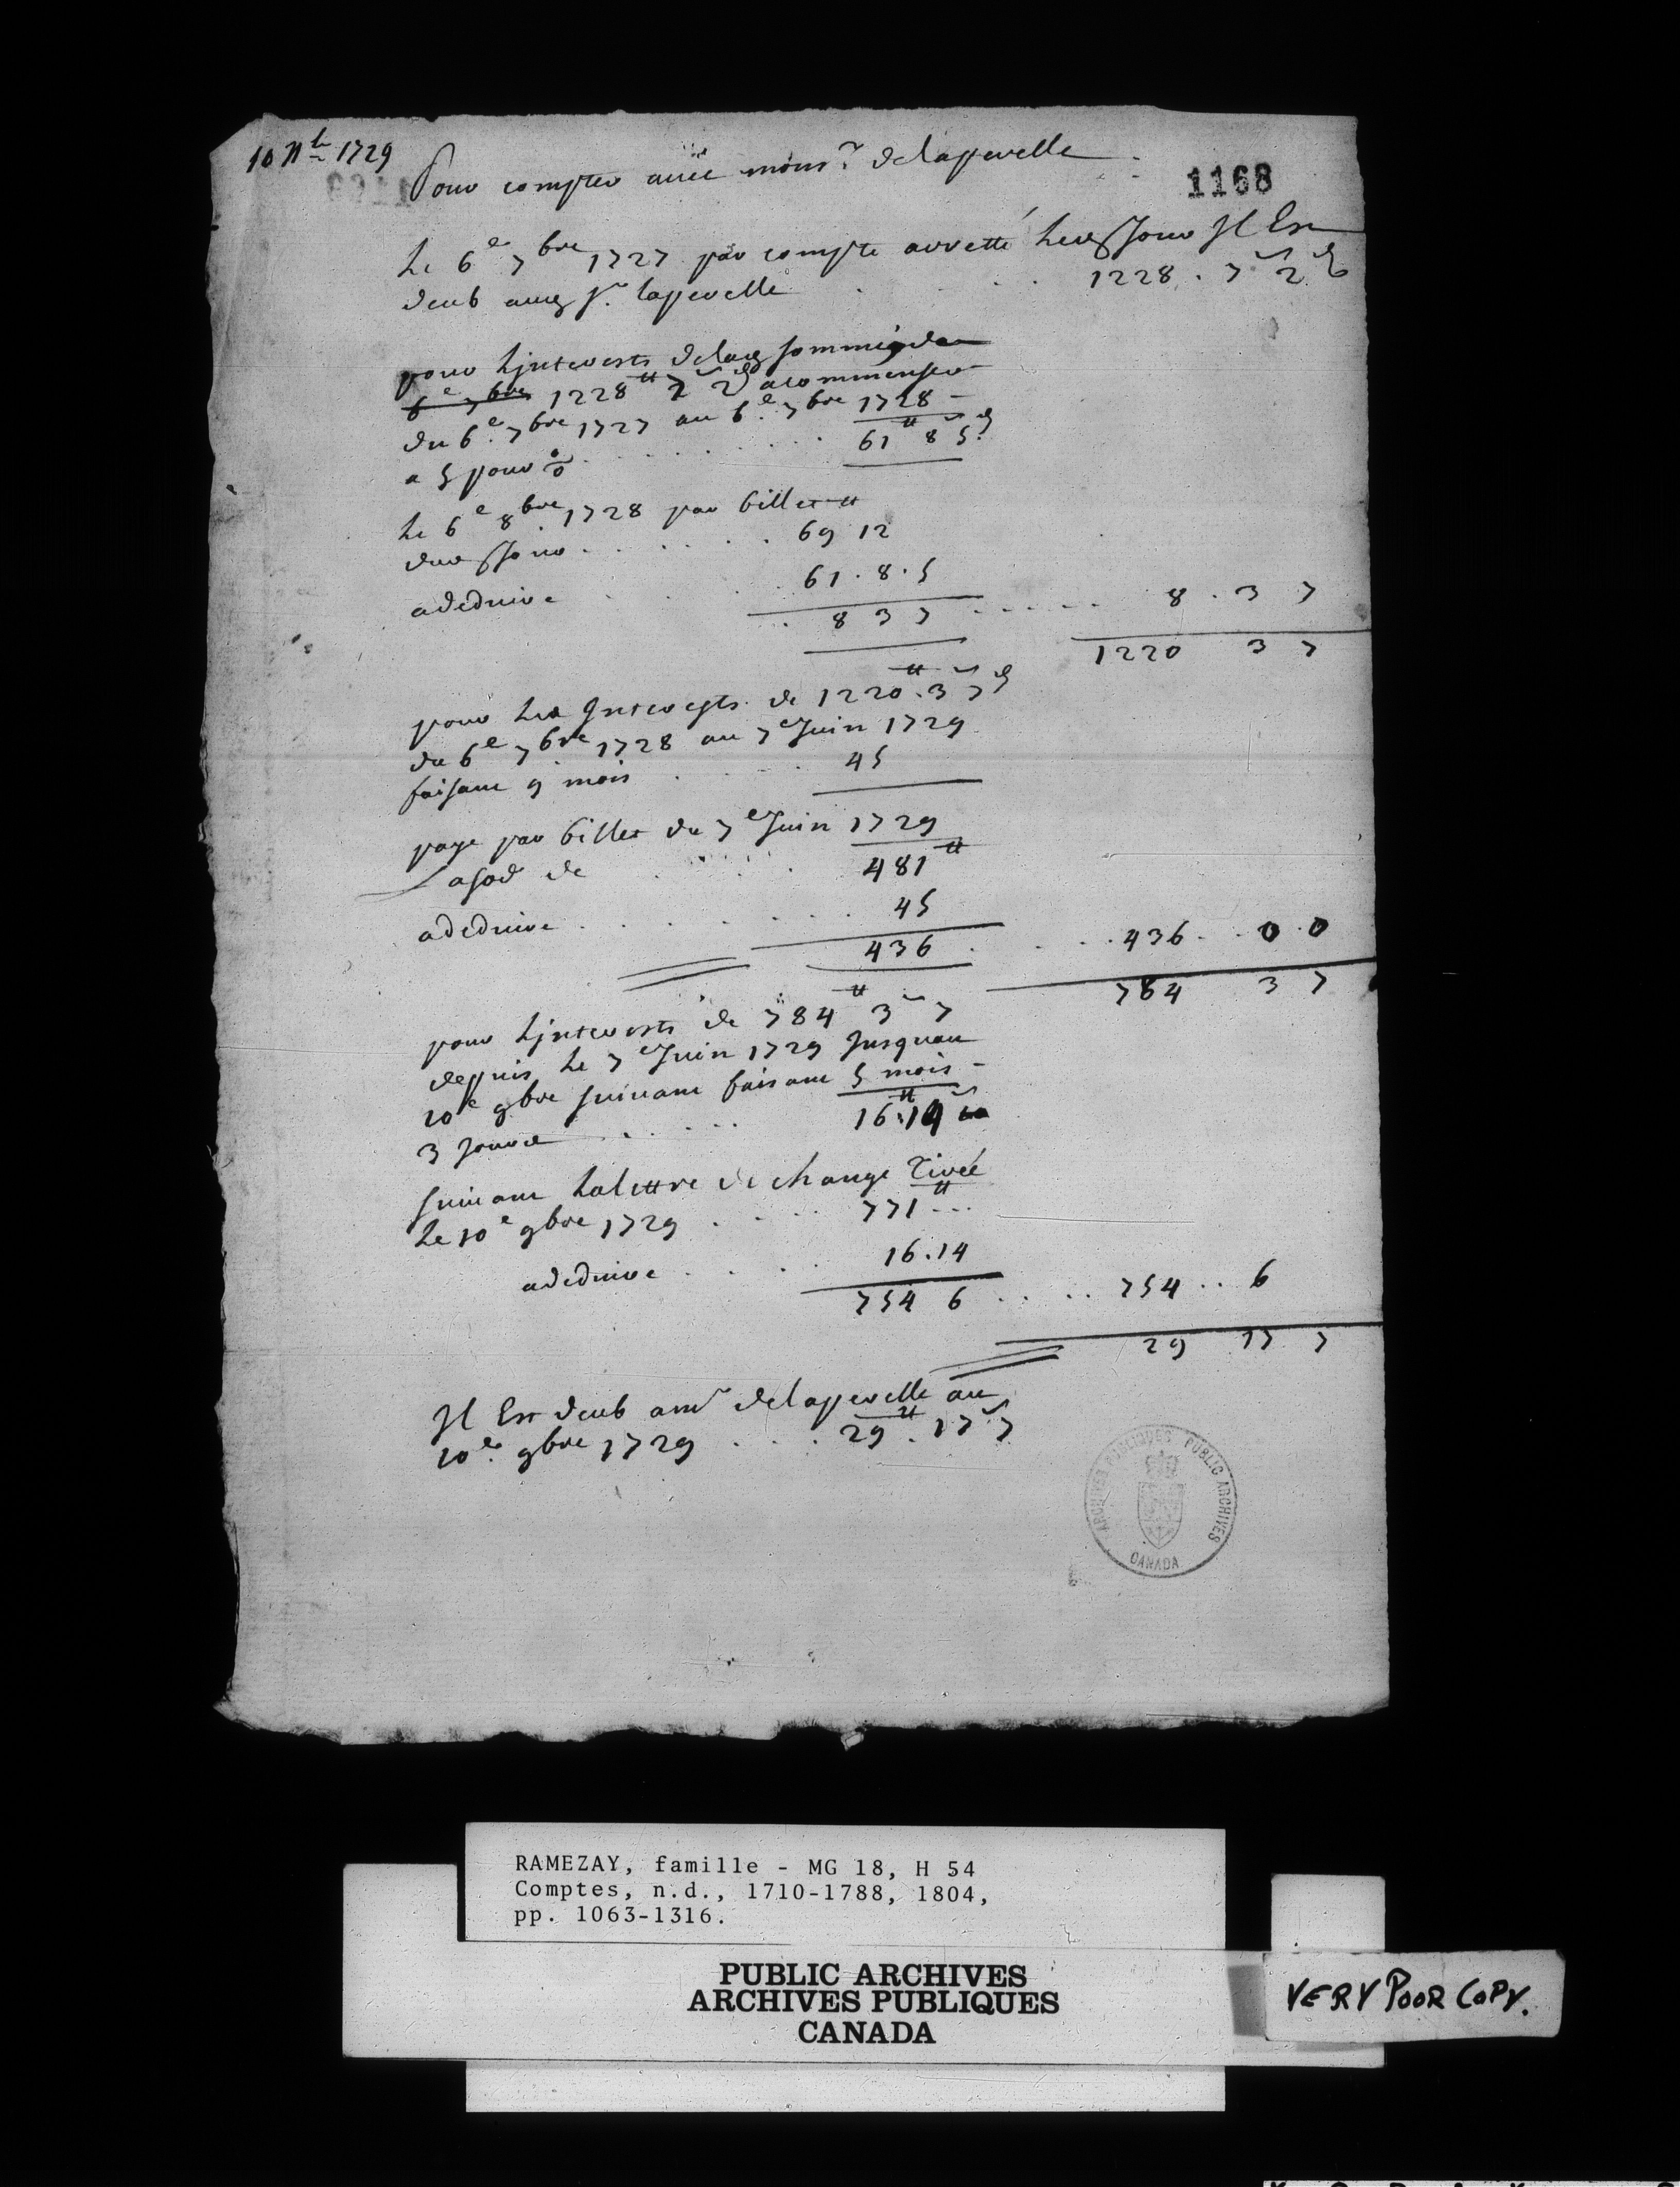 10 Nbre 1729
1168
Pour compter avec monsr. delaperelle
Le 6e 7bre 1727 par compte arretté led. Jour Il Est
deub aud. Sr. laperelle . . . 1228 . 7s 2d
pour Linterests delad. somme de
6e 7bre 1228tt 7s 2d acommenser
du 6e. 7bre 1727 au 6e. 7bre 1728
a 5 pour % . . . . . . . 61tt 8s 5d
Le 6e 8bre. 1728 par billet tt
dud. Jour . . . . . . 69 12
adeduire . . . . 61 . 8 . 5
8 3 7 . . . . . . 8 . 3 7
1220 3 7
pour Les Interests de 1220tt. 3s 7d
du 6e 7bre 1728 au 7e Juin 1729
faisant 9 mois . . . . 45
paye par billet du 7e Juin 1729
de . . . . 481tt
adeduire . . . . . . . 45
436 . . . . 436 . . 0 . 0
784 3 7
pour Linterests de 784tt 3s 7
depuis Le 7e Juin 1729 Jusquau
10e 9bre suivant faisant 5 mois
3 Jours . . . . . 16tt. 14s
suivant La lettre de change Tirée
Le 10e 9bre 1729 . . . . 771tt . . .
adeduire . . . . . 16 . 14
754 6 . . . . 754 . . 6
29 17 7
Il Est deub a mr delaperelle au
10e. 9bre 1729 . . . . 29tt . 17s 7
ARCHIVES PUBLIQUES PUBLIC ARCHIVES
CANADA
RAMEZAY, famille - MG 18, H 54
Comptes, n.d., 1710-1788, 1804,
pp. 1063-1316.
PUBLIC ARCHIVES
ARCHIVES PUBLIQUES
CANADA
VERY POOR COPY.